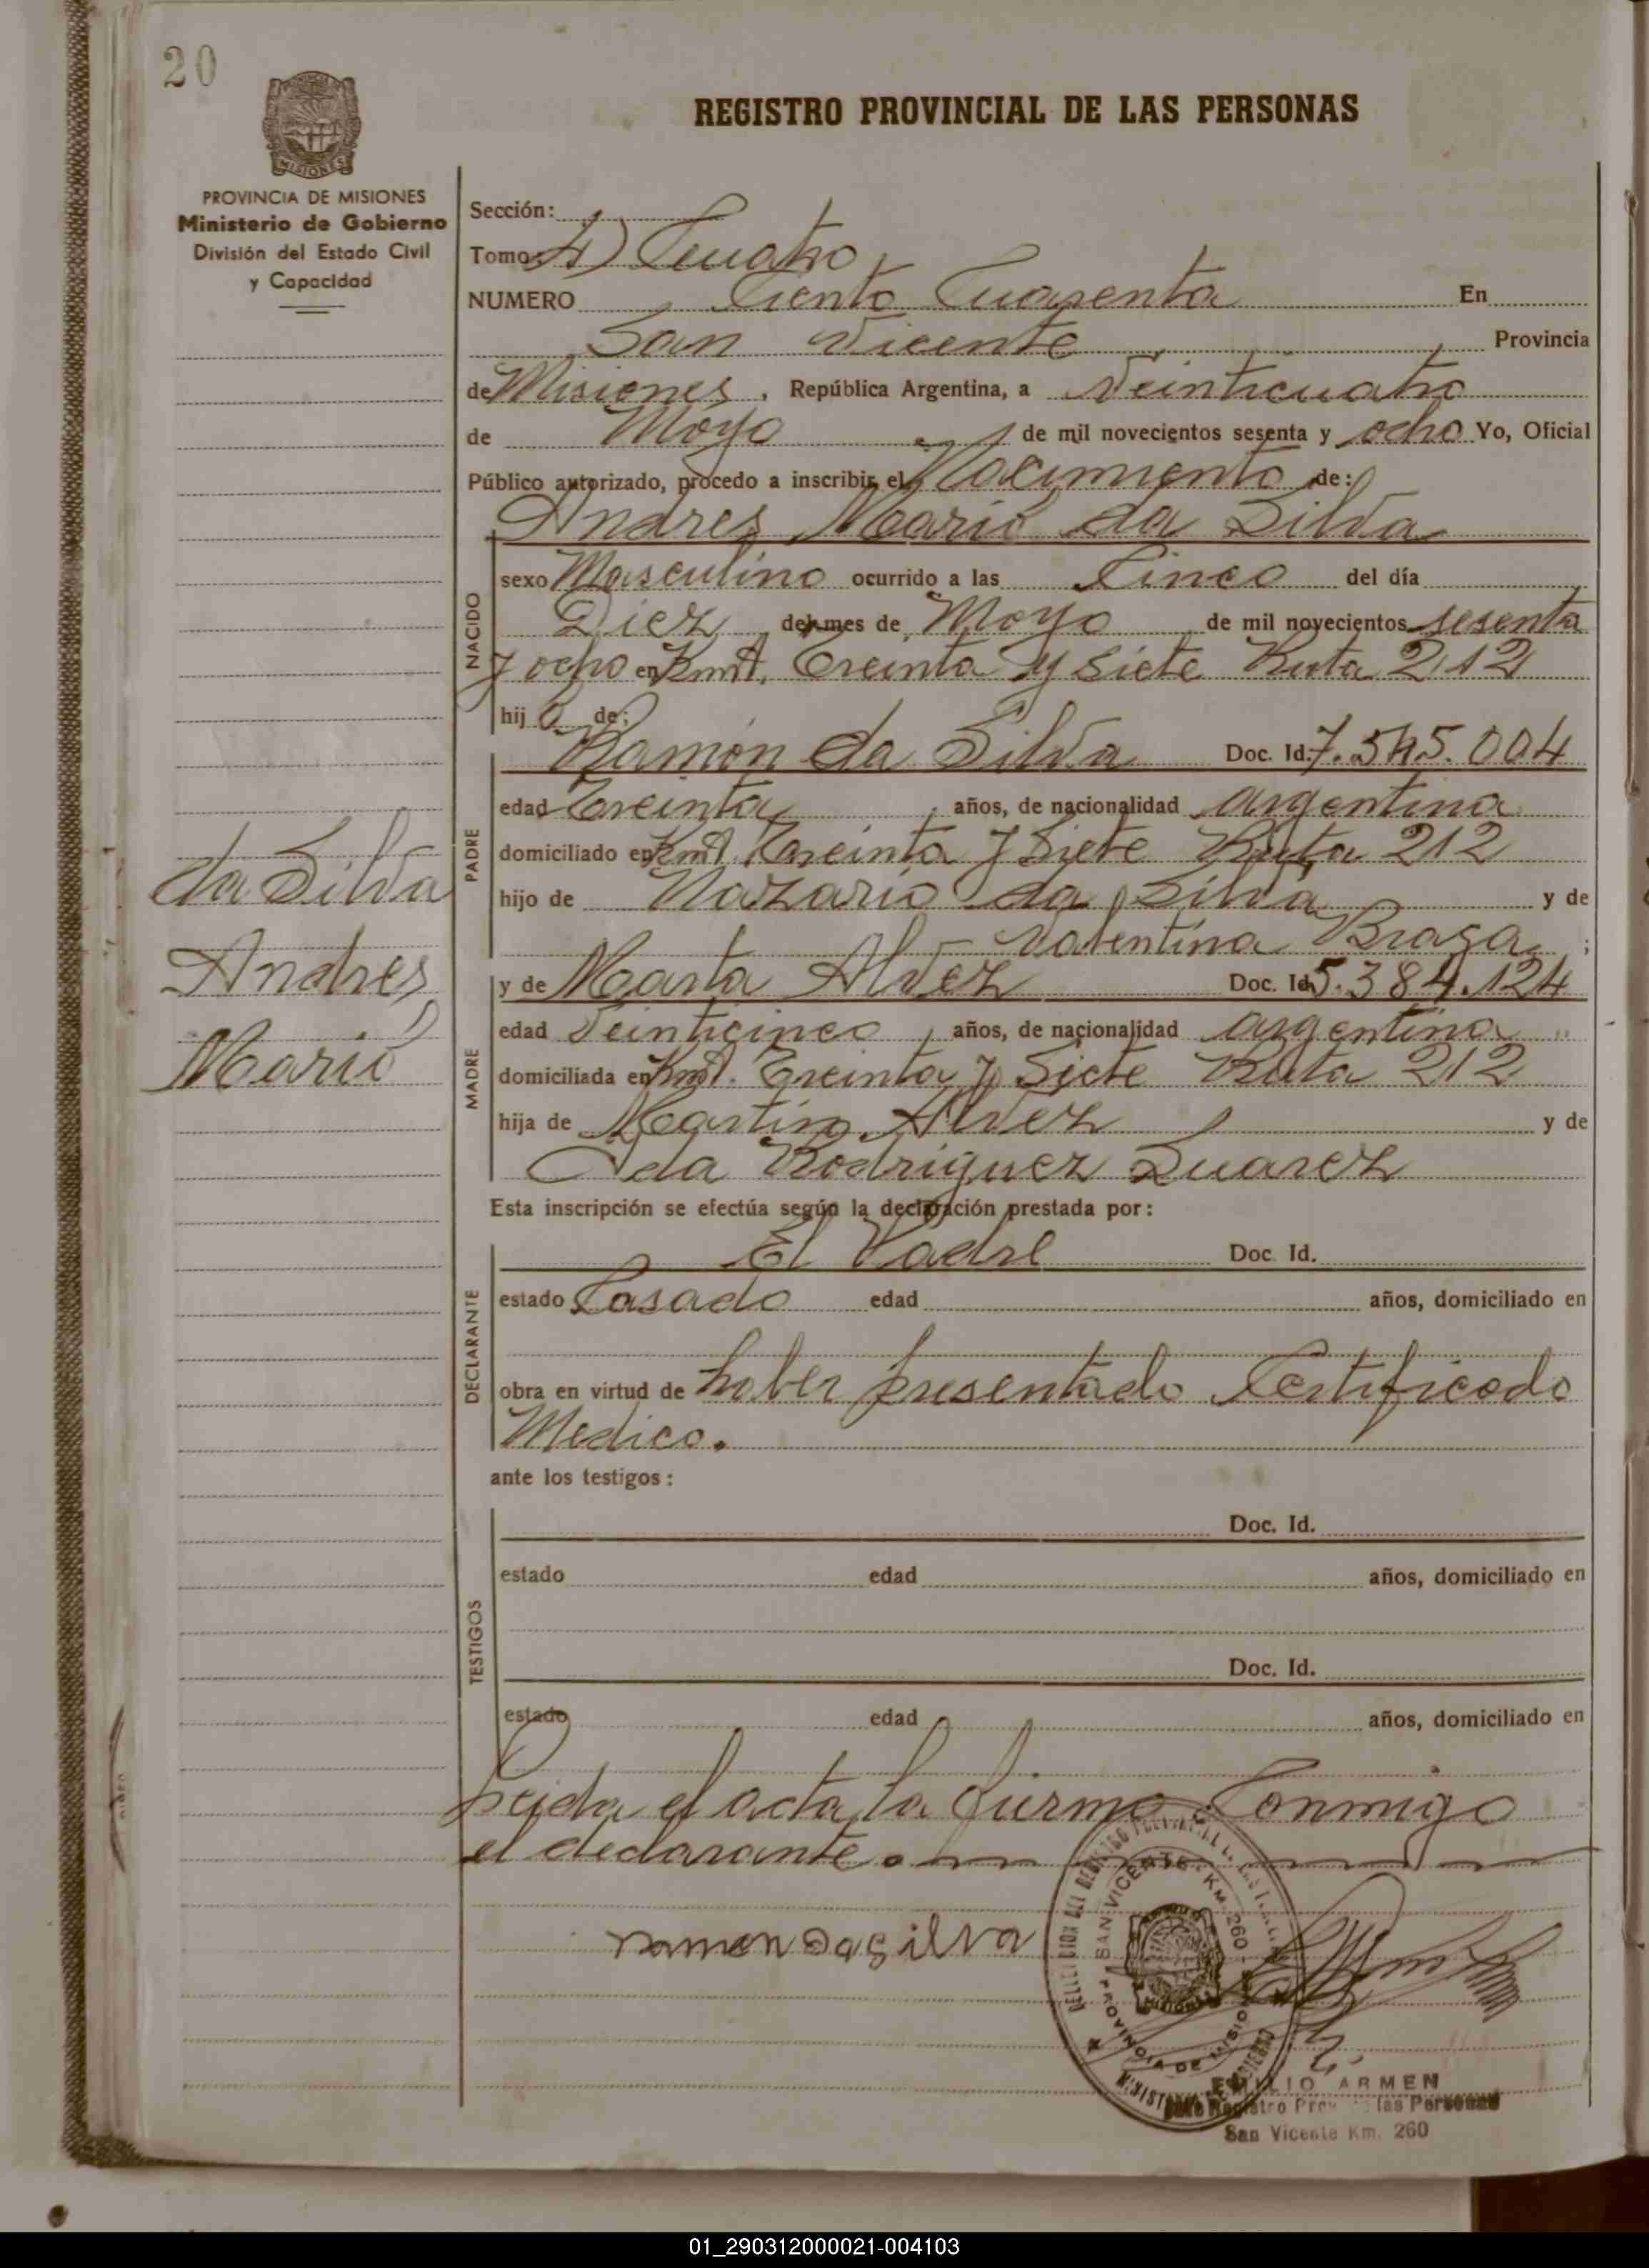 20
REGISTRO PROVINCIAL DE LAS PERSONAS
MISIONES
PROVINCIA DE MISIONES
Ministerio de Gobierno
División del Estado Civil
y Capacidad
Sección:
Tomo 4) Cuatro
NUMERO Ciento Cuarenta En
San Vicente Provincia
de Misiones, República Argentina, a Veinticuatro
de Mayo de mil novecientos sesenta y ocho Yo, Oficial
Público autorizado, procedo a inscribir el Nacimiento de:
Andres Mario da Silva
NACIDO
sexo Masculino ocurrido a las Cinco del día
Diez del mes de Mayo de mil novecientos sesenta
y ocho en Kmt. Treinta y Siete Ruta 212
hijo de:
Ramón da Silva Doc. Id. 7.545.004
PADRE
edad Treinta años, de nacionalidad argentina
domiciliado en Kmt. Treinta y Siete Ruta 212
hijo de Nazario da Silva y de
Valentina Braga ;
da Silva
Andres
Mario
y de Marta Alvez Doc. Id. 5.384.124
MADRE
edad Veinticinco años, de nacionalidad argentina
domiciliada en Kmt. Treinta y Siete Ruta 212
hija de Martin Alvez y de
Ada Rodriguez Suarez
Esta inscripción se efectúa según la declaración prestada por:
El Padre Doc. Id.
DECLARANTE
estado Casado edad años, domiciliado en
obra en virtud de haber presentado Certificado
Medico.
ante los testigos:
Doc. Id.
TESTIGOS
estado edad años, domiciliado en
Doc. Id.
estado edad años, domiciliado en
Leida el acta, la firma Conmigo
el declarante.
ramon da silva
SAN VICENTE KM. 260
PROVINCIA DE MISIONES
EMILIO ARMEN
Registro Prov. las Personas
San Vicente Km. 260
01_290312000021-004103